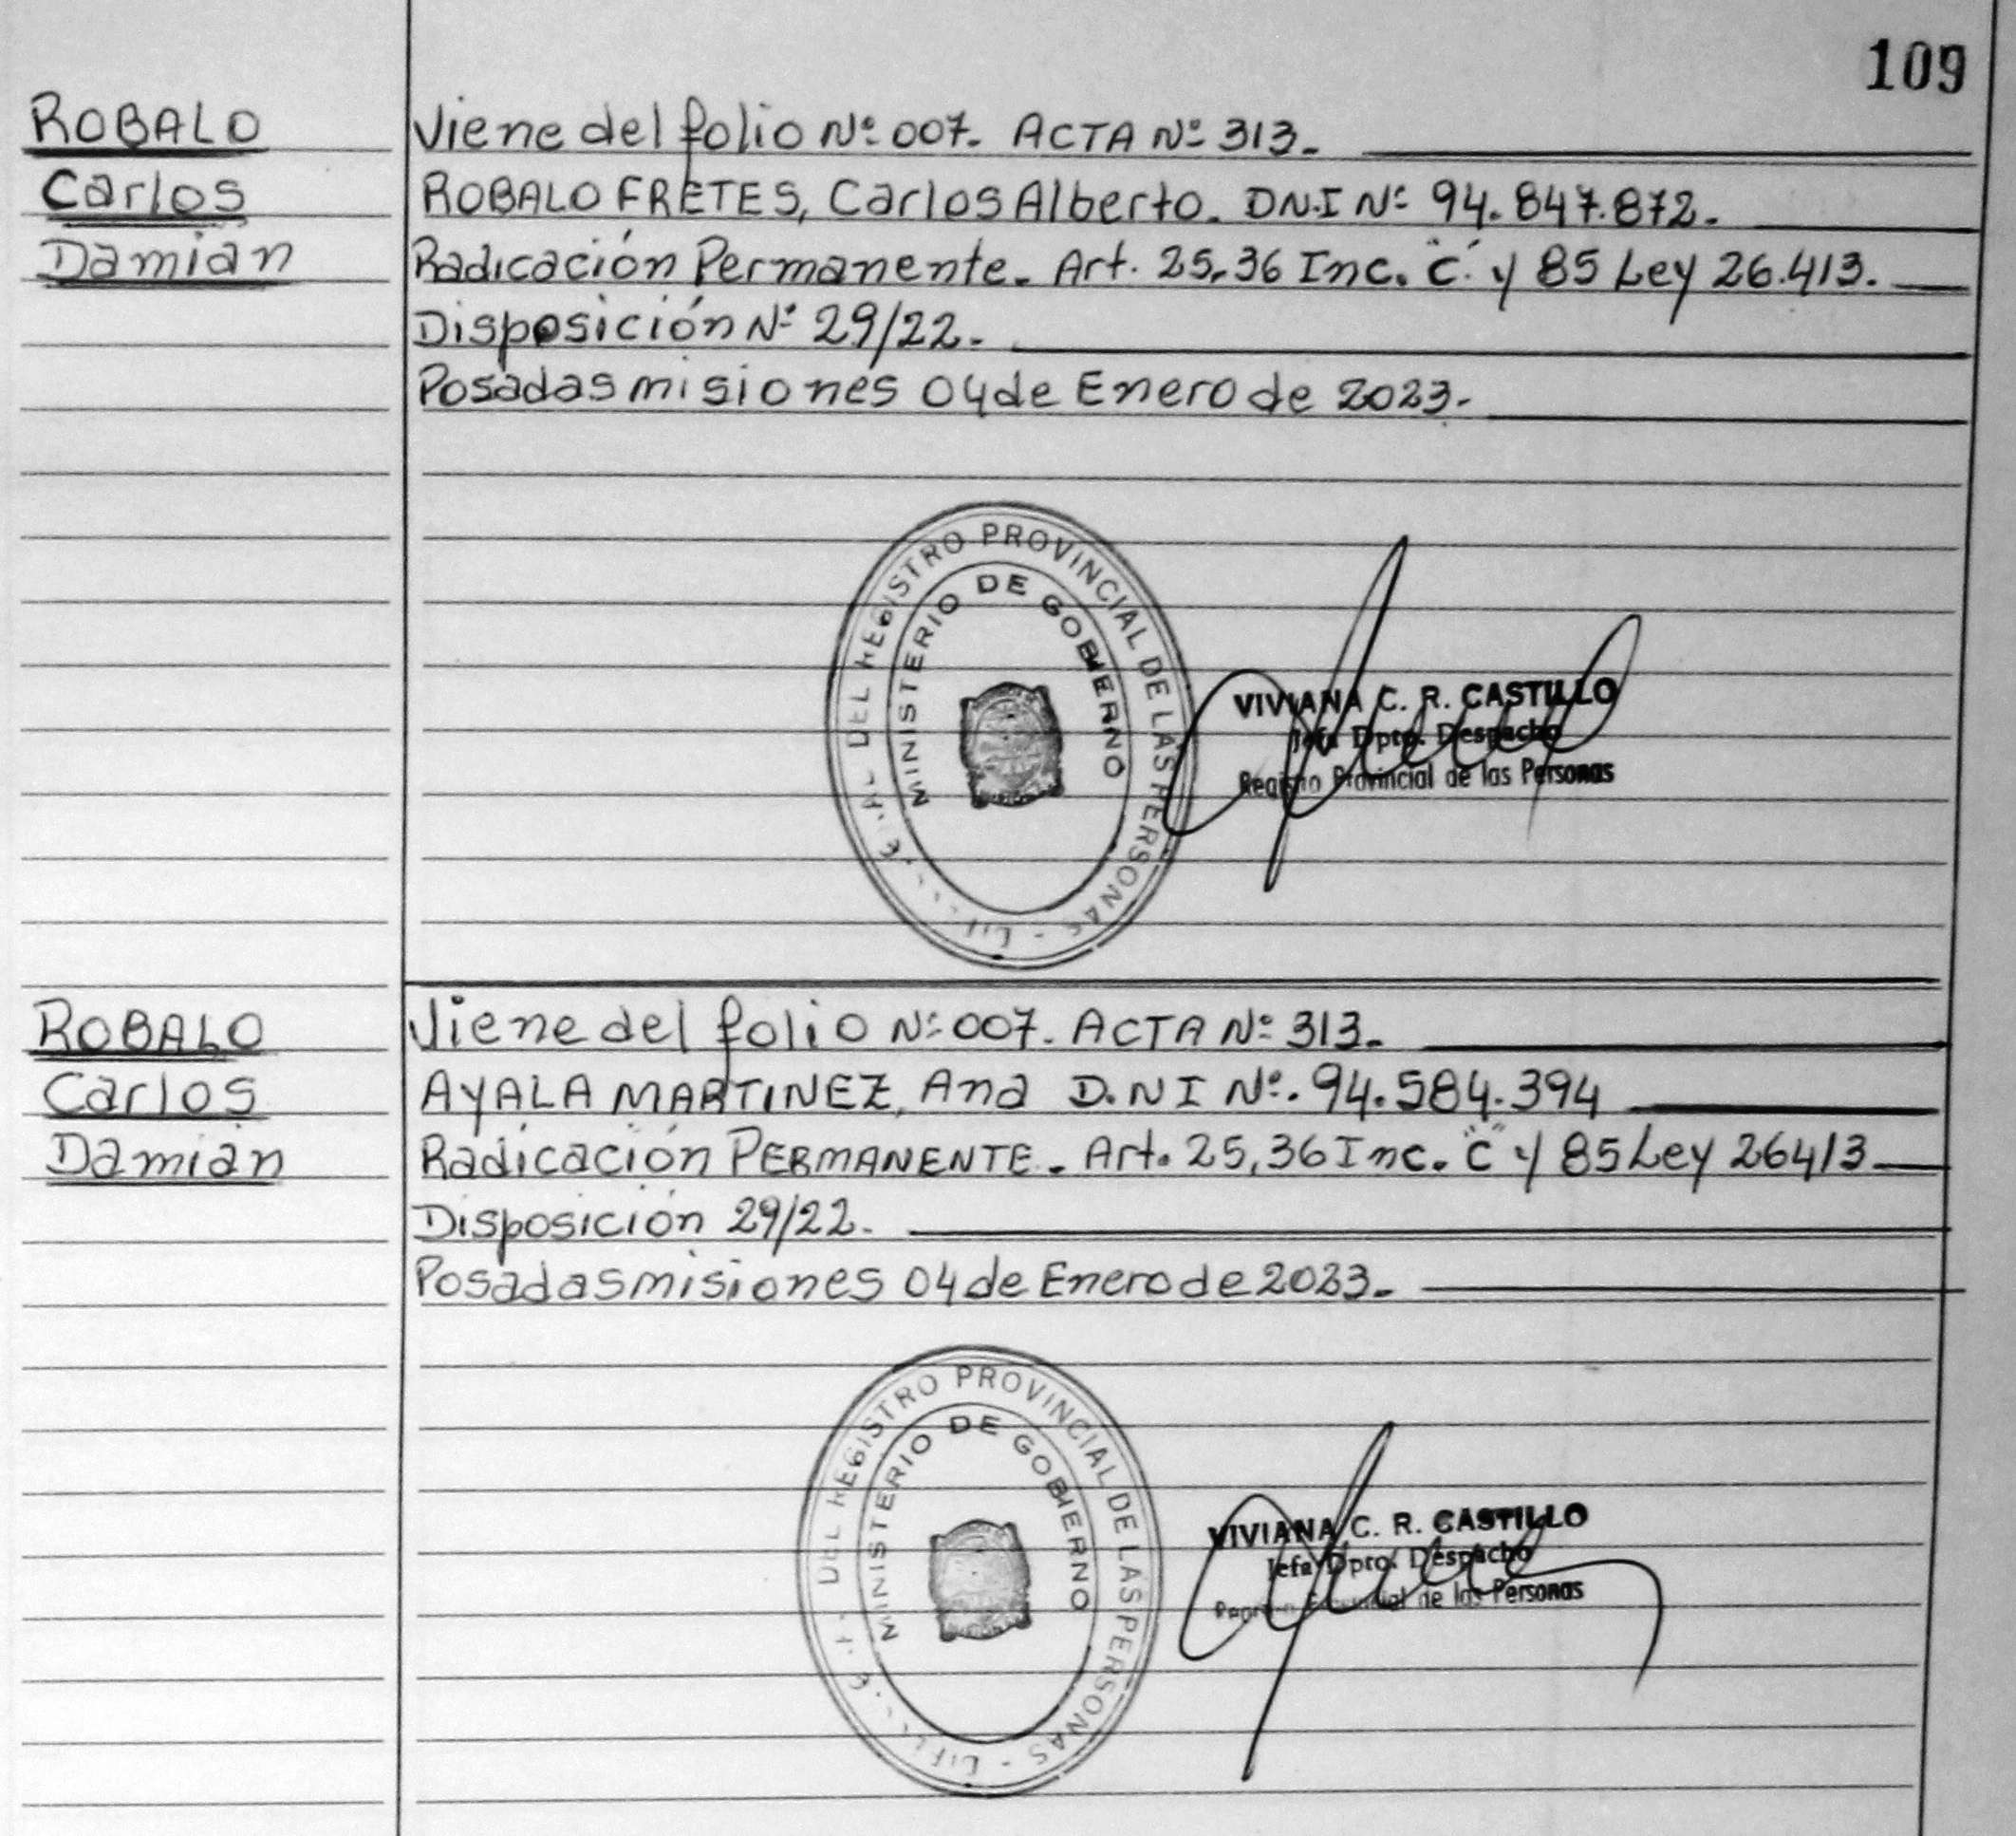 109
ROBALO
Carlos
Damian
Viene del folio Nº 007. ACTA Nº 313.
ROBALO FRETES, Carlos Alberto. DN.I Nº 94.847.872.
Radicación Permanente. Art. 25,36 Inc. "C" y 85 Ley 26.413.
Disposición Nº 29/22.
Posadas misiones 04 de Enero de 2023.
DEL REGISTRO PROVINCIAL DE LAS PERSONAS
MINISTERIO DE GOBIERNO
VIVIANA C. R. CASTILLO
Jefa Dpto. Despacho
Registro Provincial de las Personas
ROBALO
Carlos
Damián
Viene del folio Nº 007. ACTA Nº 313.
AYALA MARTINEZ, Ana D.N I Nº. 94.584.394
Radicación PERMANENTE. Art. 25,36 Inc. "C" y 85 Ley 26413
Disposición 29/22.
Posadas misiones 04 de Enero de 2023.
DEL REGISTRO PROVINCIAL DE LAS PERSONAS
MINISTERIO DE GOBIERNO
VIVIANA C. R. CASTILLO
Jefa Dpto. Despacho
Registro Provincial de las Personas